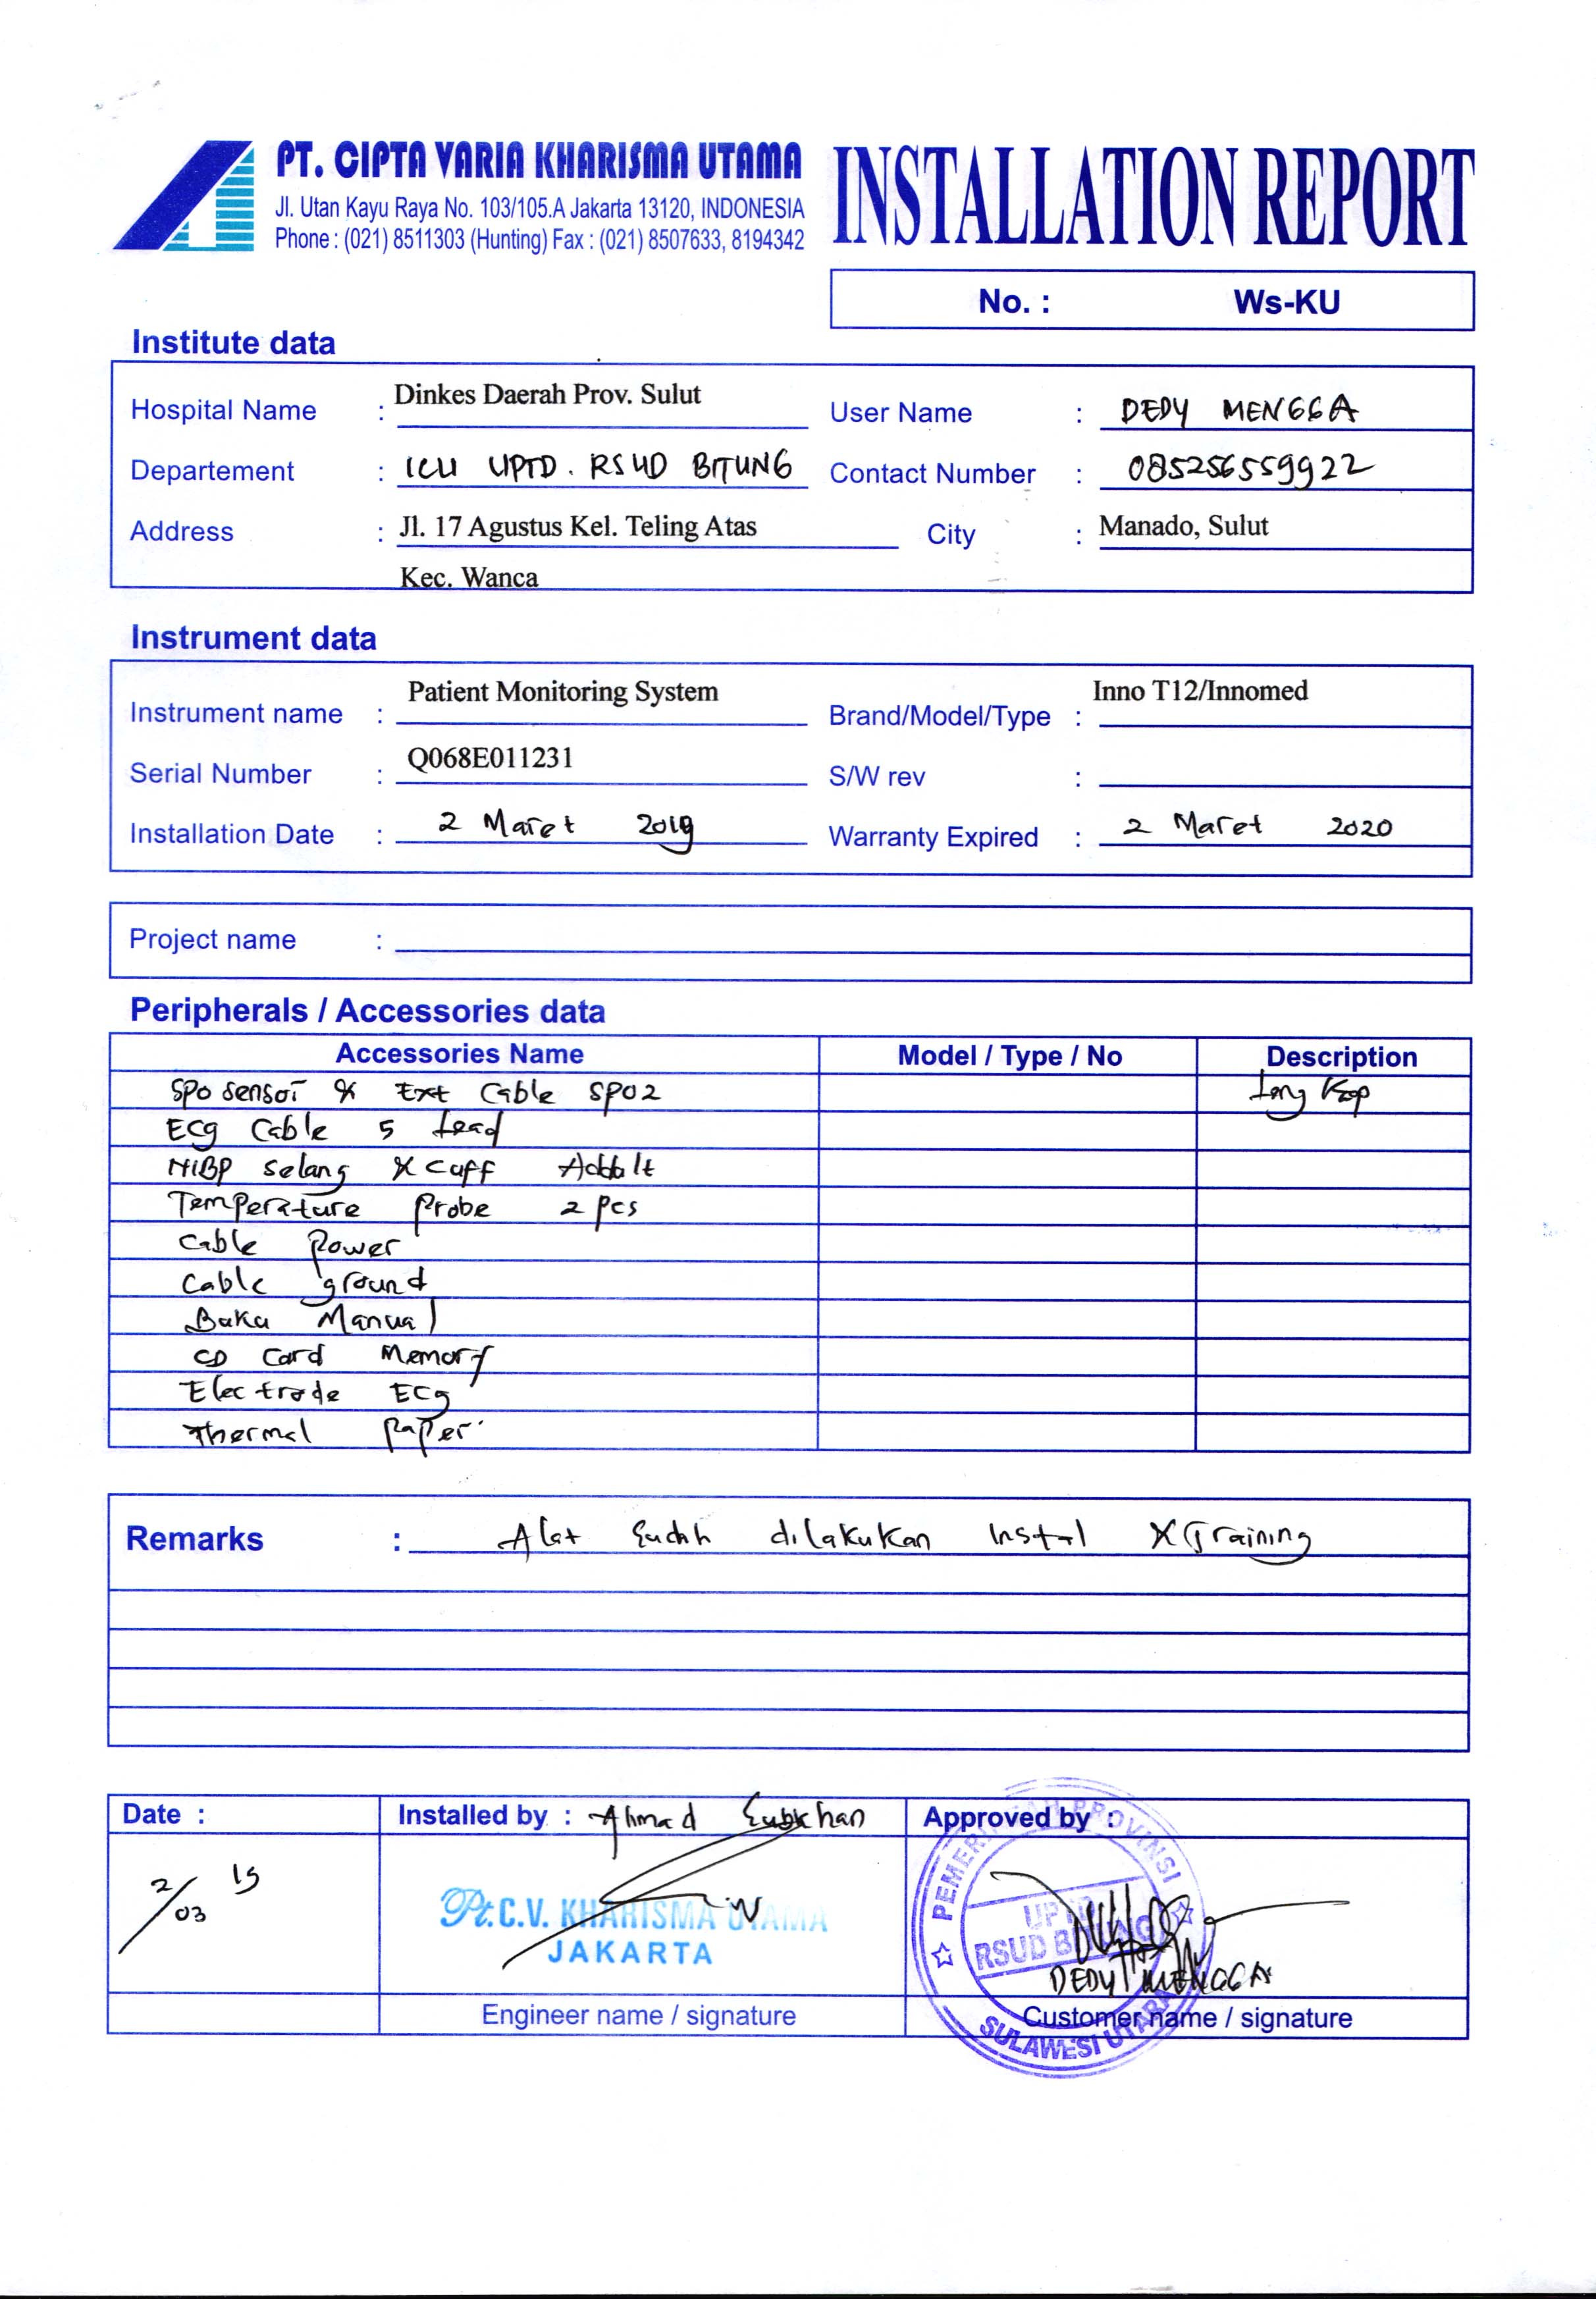 PT. CIPTA VARIA KHARISMA UTAMA
Jl. Utan Kayu Raya No. 103/105.A Jakarta 13120, INDONESIA
Phone : (021) 8511303 (Hunting) Fax : (021) 8507633, 8194342
INSTALLATION REPORT
No. : Ws-KU
Institute data
Hospital Name : Dinkes Daerah Prov. Sulut User Name : DEDY MENGGA
Departement : ICU UPTD. RSUD BITUNG Contact Number : 085256559922
Address : Jl. 17 Agustus Kel. Teling Atas City : Manado, Sulut
Kec. Wanca
Instrument data
Instrument name : Patient Monitoring System Brand/Model/Type : Inno T12/Innomed
Serial Number : Q068E011231 S/W rev :
Installation Date : 2 Maret 2019 Warranty Expired : 2 Maret 2020
Project name :
Peripherals / Accessories data
Accessories Name Model / Type / No Description
SPO sensor & Ext Cable SPO2
ECG Cable 5 Lead
NIBP selang & cuff
Temperature Probe 2 pcs
Cable Power
Cable ground
Buku Manual
Card Memory
Electrode ECG
Thermal Paper
Remarks : Alat sudah dilakukan Instal & Training
Date : Installed by : Ahmad Subkhan Approved by :
2/03 19
Pt. C.V. KHARISMA UTAMA
JAKARTA
PEMERINTAH PROVINSI
UPTD
RSUD BITUNG
SULAWESI UTARA
DEDY MENGGA
Engineer name / signature Customer name / signature